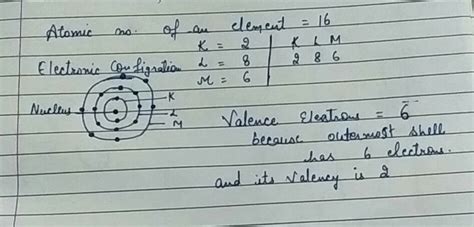 Atomic no. of an element = 16
K = 2 K L M
Electronic Configration L = 8 2 8 6
M = 6
Nucleus K
L
M
Valence Electrons = 6
because outermost shell
has 6 electrons.
and its valency is 2